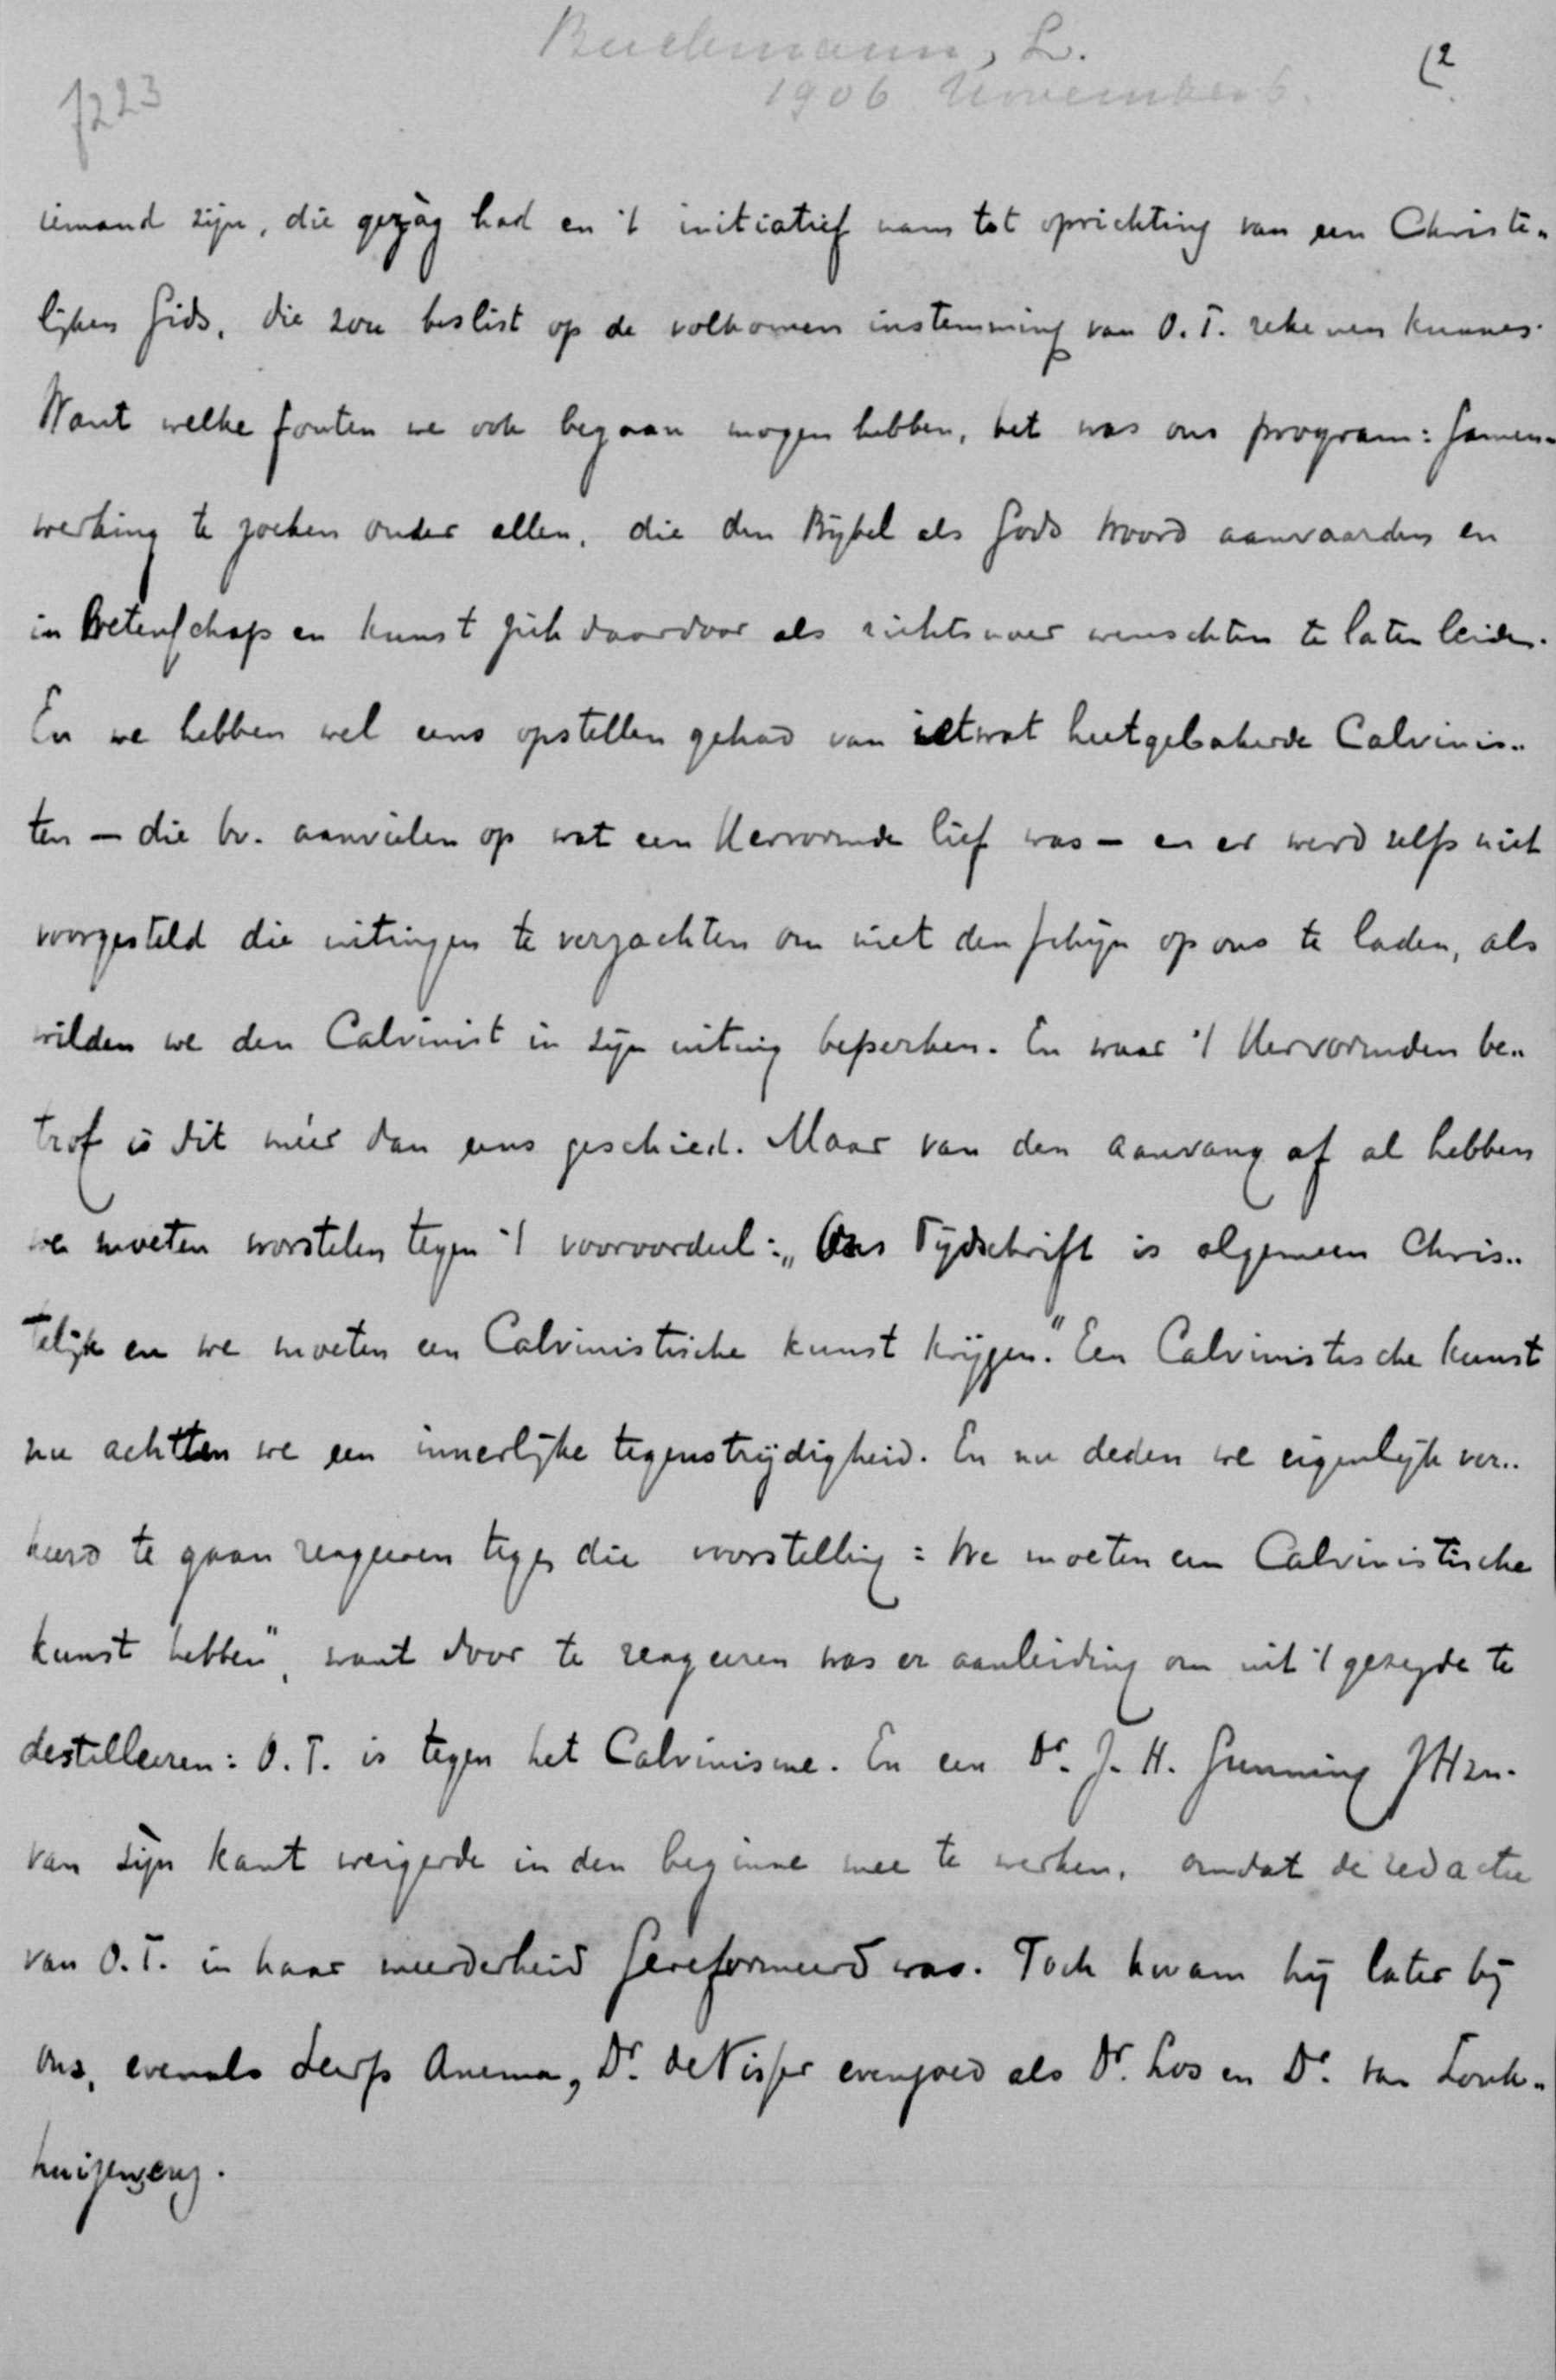 Buckmann, L.
(2
1906 November 6.
7223
iemand zijn, die gezàg had en 't initiatief nam tot oprichting van een Christe-
lijken Gids, die zou beslist op de volkomen instemming van O.T. rekenen kunnen.
Want welke fouten we ook begaan mogen hebben, het was ons program: Samen-
werking te zoeken onder allen, die den Bijbel als Gods Woord aanvaarden en
in Wetenschap en kunst zich daardoor als richtsnoer wenschten te laten leiden.
En we hebben wel eens opstellen gehad van ietwat heetgebakerde Calvinis-
ten – die bv. aanvielen op wat een Hervormde lief was – en er werd zelfs niet
voorgesteld die uitingen te verzachten om niet den schijn op ons te laden, als
wilden we den Calvinist in zijn uiting beperken. En waar 't Hervormden be-
trof is dit méér dan eens geschied. Maar van den aanvang af al hebben
we moeten worstelen tegen 't vooroordeel: „Ons Tijdschrift is algemeen Chris-
telijk en we moeten een Calvinistische kunst krijgen." Een Calvinistische kunst
nu achtten we een innerlijke tegenstrijdigheid. En nu deden we eigenlijk ver-
keerd te gaan reageeren tegen die voorstelling: We moeten een Calvinistische
kunst hebben", want door te reageeren was er aanleiding om uit 't gezegde te
destilleeren: O.T. is tegen het Calvinisme. En een Dr. J. H. Gunning JHzn.
van zijn kant weigerde in den beginne mee te werken, omdat de redactie
van O.T. in haar meerderheid Gereformeerd was. Toch kwam hij later bij
ons, evenals Seerp Anema, Dr. de Visser evengoed als Dr. Los en Dr. van Lonk-
huijzen, enz.